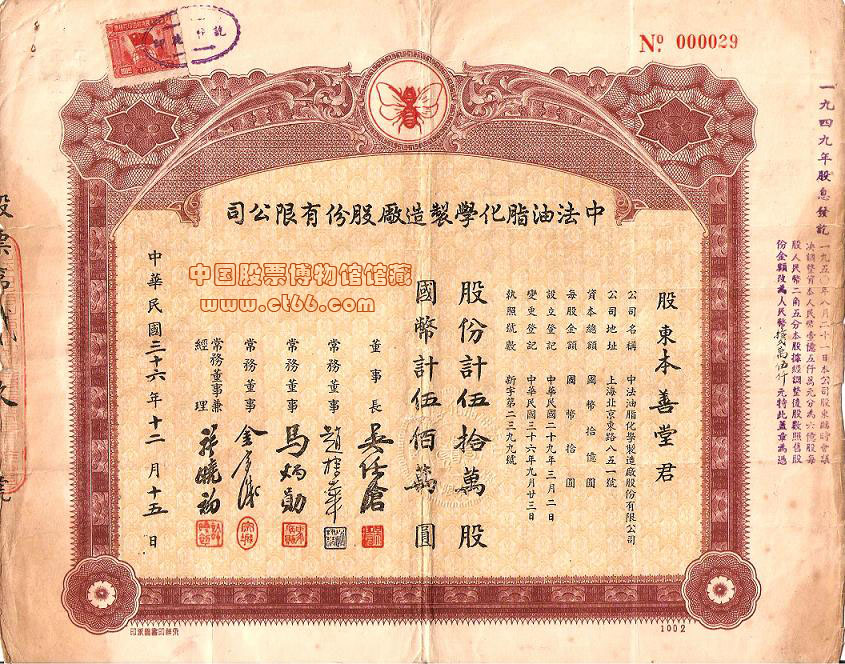 Nº 000029
1949
中法油脂化學製造廠股份有限公司
股東本善堂君
公司名稱 中法油脂化學製造廠股份有限公司
公司地址 上海北京東路八五一號
資本總額 國幣拾億圓
每股金額 國幣拾圓
設立登記 中華民國二十九年三月二日
變更登記 中華民國三十六年九月廿三日
執照號數 新字第二三九九號
股份計伍拾萬股
國幣計伍佰萬圓
董事長
常務董事 趙棣華
常務董事 馬炳勛
常務董事
常務董事兼經理
中華民國三十六年十二月十五日
中国股票博物馆馆藏
www.ct66.com
一九四九年股息發訖
一九五〇年八月二十一日本公司股東臨時會議
決調整資本人民幣壹億五仟萬元分為六億股每
股人民幣二角五分本股據經調整後股數照舊股
份金額改為人民幣
元特此蓋章為憑
股票第
號
1002